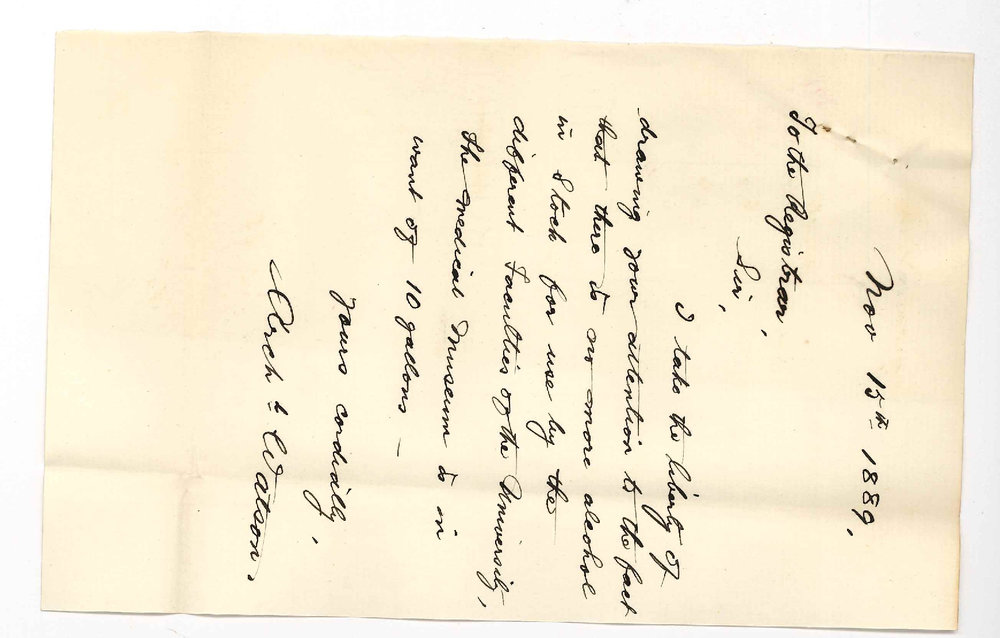 Nov 15th 1889.
To the Registrar,
Sir,
I take the liberty of
drawing your attention to the fact
that there is no more alcohol
in Stock for use by the
different Faculties of the University,
the medical Museum is in
want of 10 gallons —
Yours cordially,
Archd Watson.